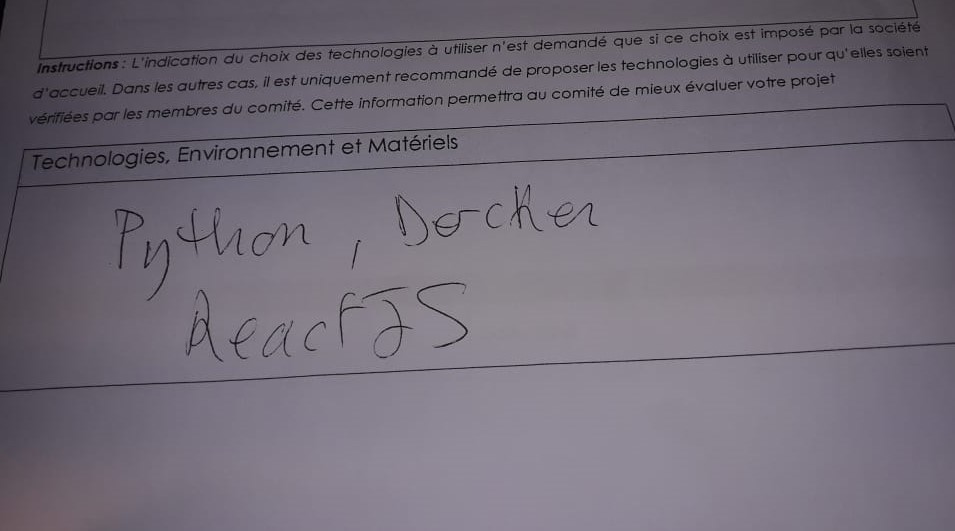 Instructions : L'indication du choix des technologies à utiliser n'est demandé que si ce choix est imposé par la société
d'accueil. Dans les autres cas, il est uniquement recommandé de proposer les technologies à utiliser pour qu'elles soient
vérifiées par les membres du comité. Cette information permettra au comité de mieux évaluer votre projet
Technologies, Environnement et Matériels
Python, Docker
ReactJS